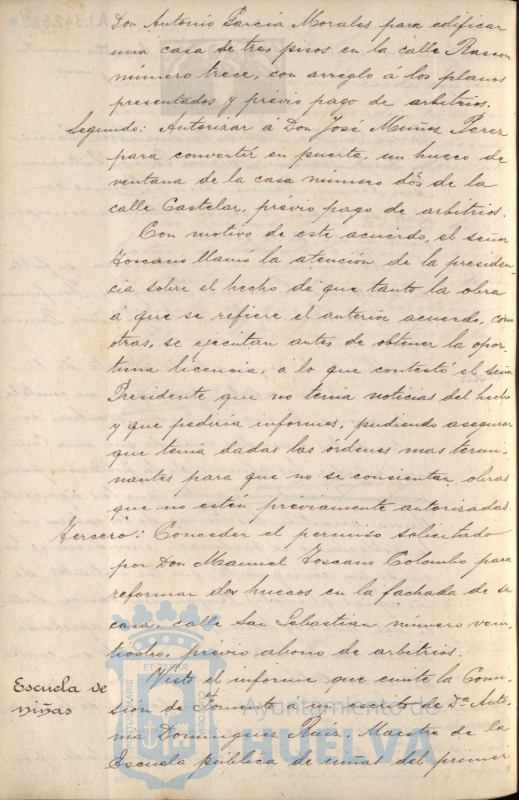 Don Antonio García Morales para edificar
una casa de tres pisos en la calle Rascon
número trece, con arreglo á los planos
presentados y prévio pago de arbitrios.
Segundo: Autorizar á Don José Muñoz Perez
para convertir en puerta, un hueco de
ventana de la casa número dos de la
calle Castelar, prévio pago de arbitrios.
Con motivo de este acuerdo, el señor
Toscano llamó la atención de la presiden-
cia sobre el hecho de que tanto la obra
á que se refiere el anterior acuerdo, como
otras, se ejecutan antes de obtener la opor-
tuna licencia, a lo que contestó el señor
Presidente que no tenia noticias del hecho
y que pediria informes, pudiendo asegurar
que tenia dadas las órdenes mas termi-
nantes para que no se consientan obras
que no estén préviamente autorizadas.
Tercero: Conceder el permiso solicitado
por Don Manuel Toscano Colombo para
reformar dos huecos en la fachada de su
casa, calle San Sebastian número vein-
tiocho, previo abono de arbitrios.
Escuela de niñas
Visto el informe que emite la Comi-
sión de Fomento a un escrito de Dª Anto-
nia Dominguez Ruiz, Maestra de la
Escuela pública de niñas del primer
Ayuntamiento de
HUELVA